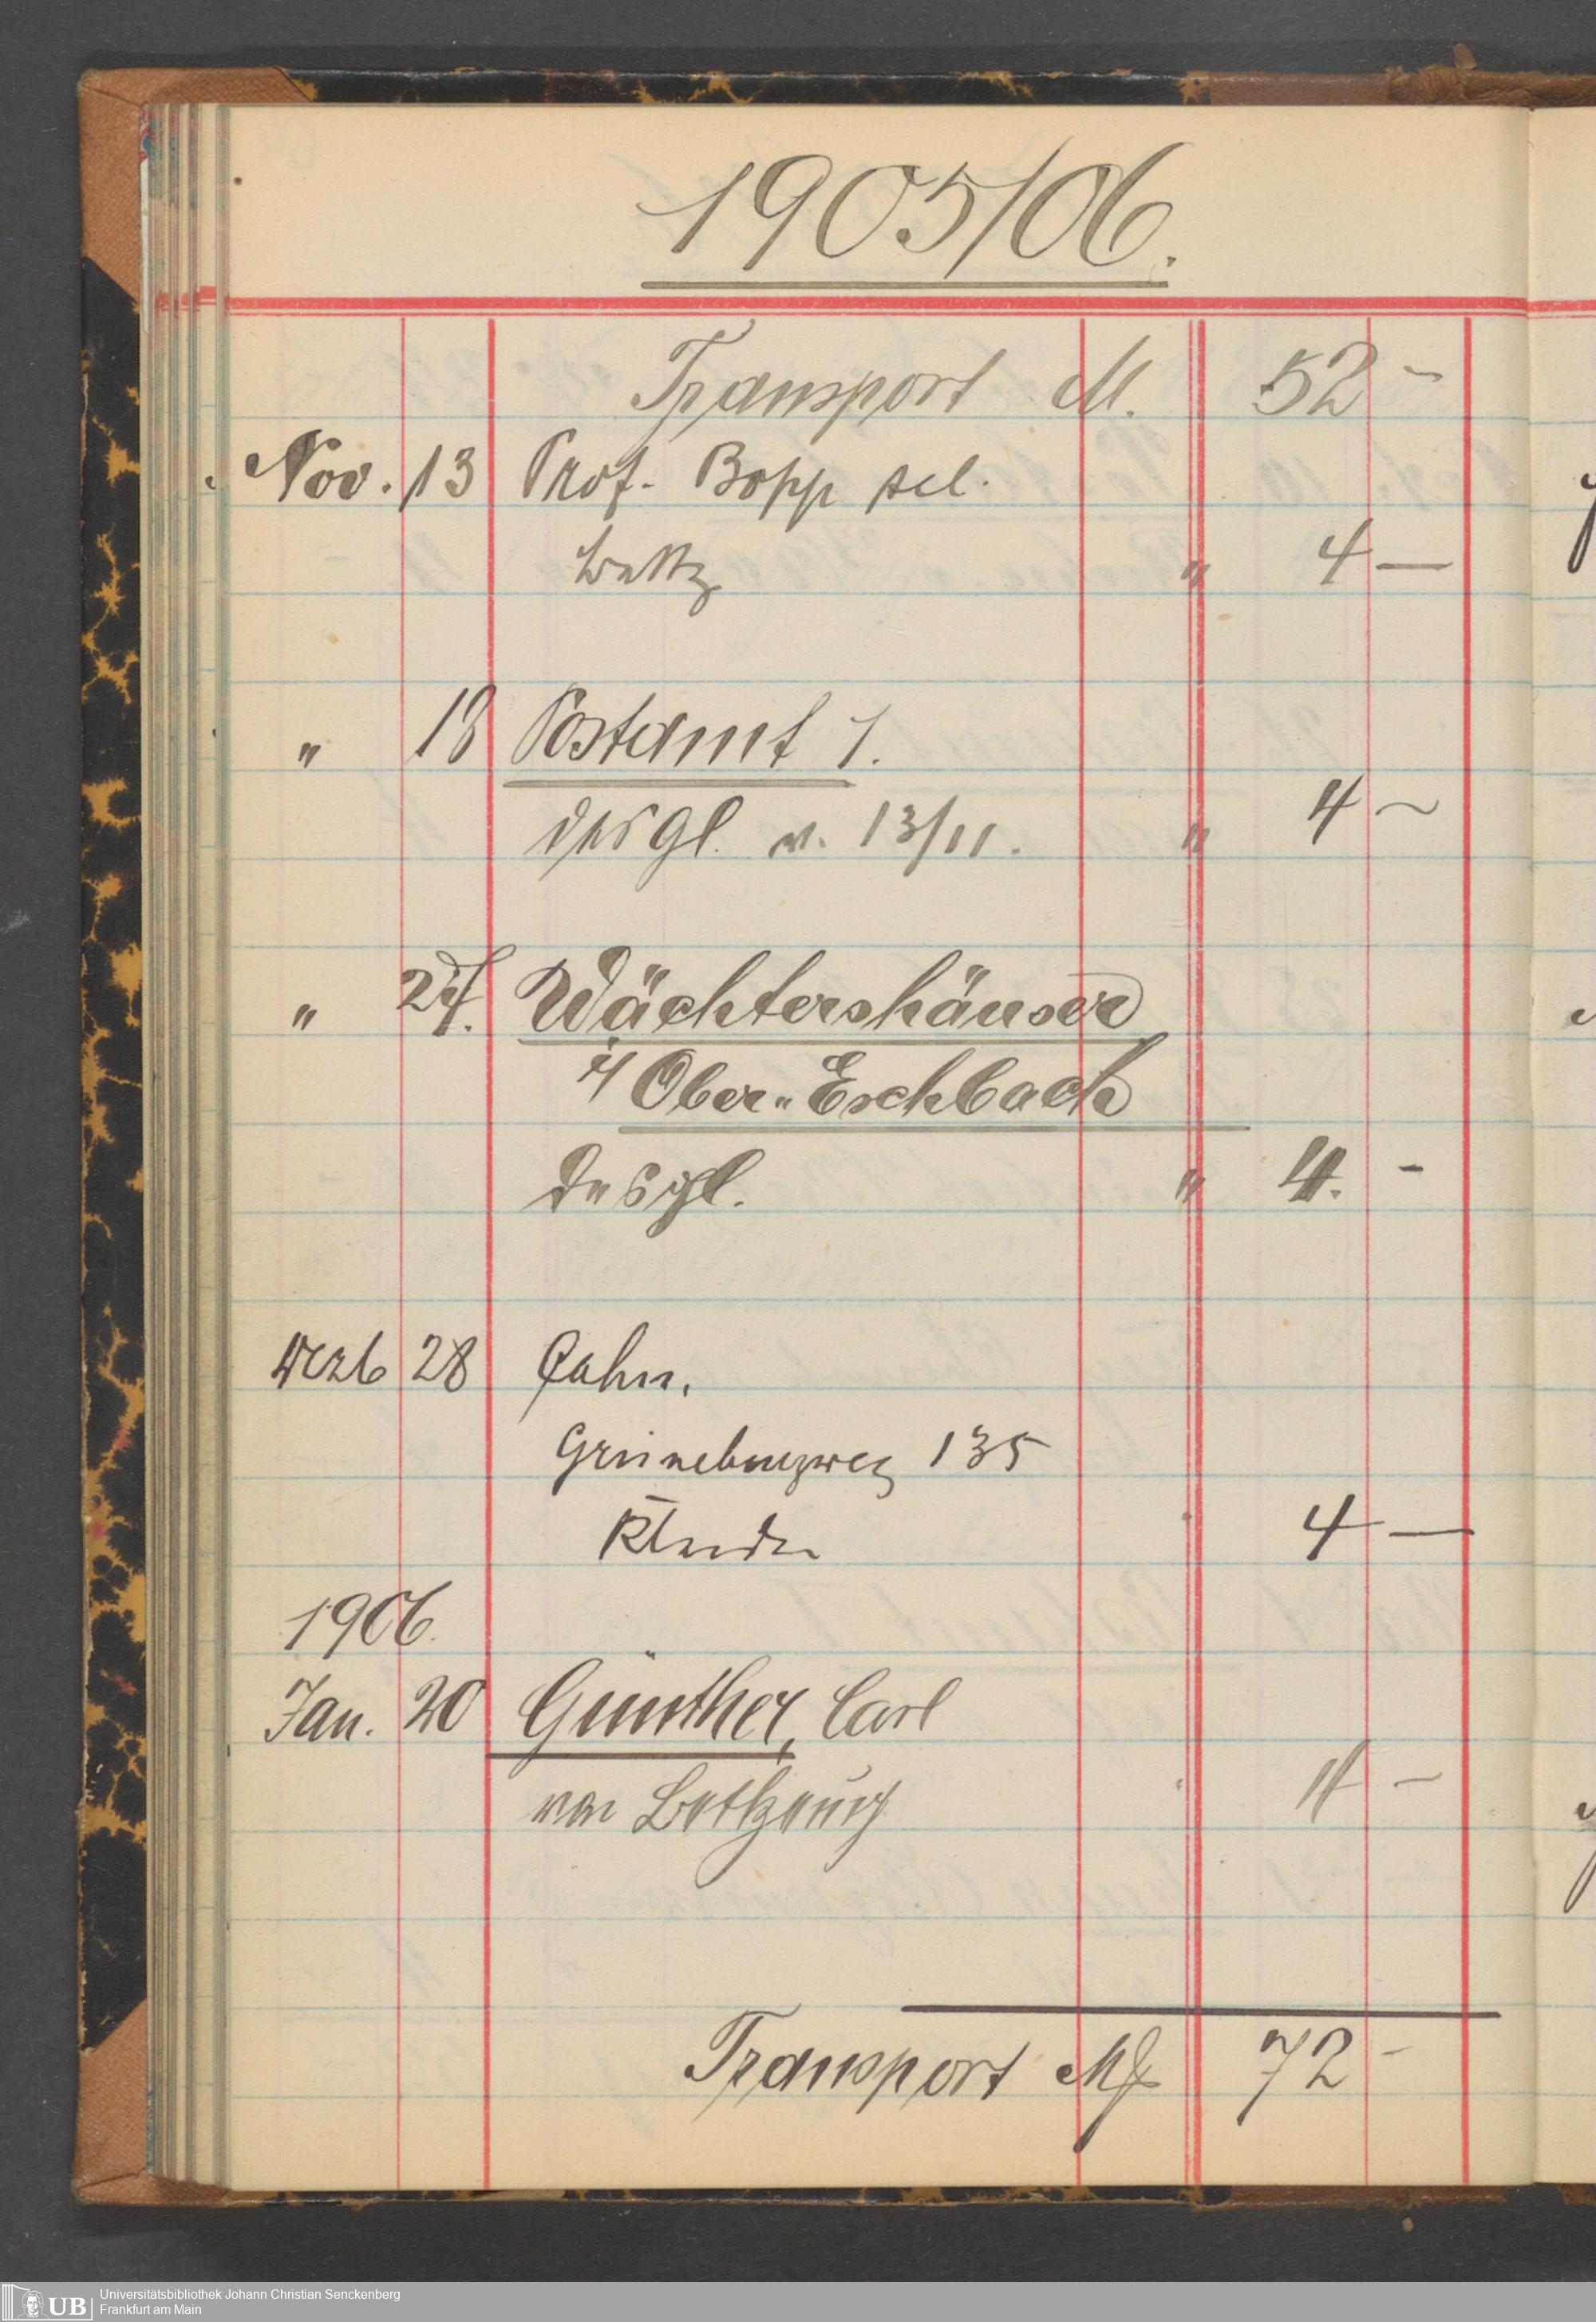 1905/06.
Transport M. 52 -
Nov. 13 Prof. Bopp sel.
" 4 —
" 18 Postamt 1.
desgl. v. 13/11. " 4 ~
" 27. Wächtershäuser
i/ Ober-Eschbach
desgl. " 4. -
Dezb 28 Cahn,
Grüneburgweg 135
4 —
1906.
Jan. 20 Günther, Carl
von 4 -
Transport M 72 -
Universitätsbibliothek Johann Christian Senckenberg
UB Frankfurt am Main